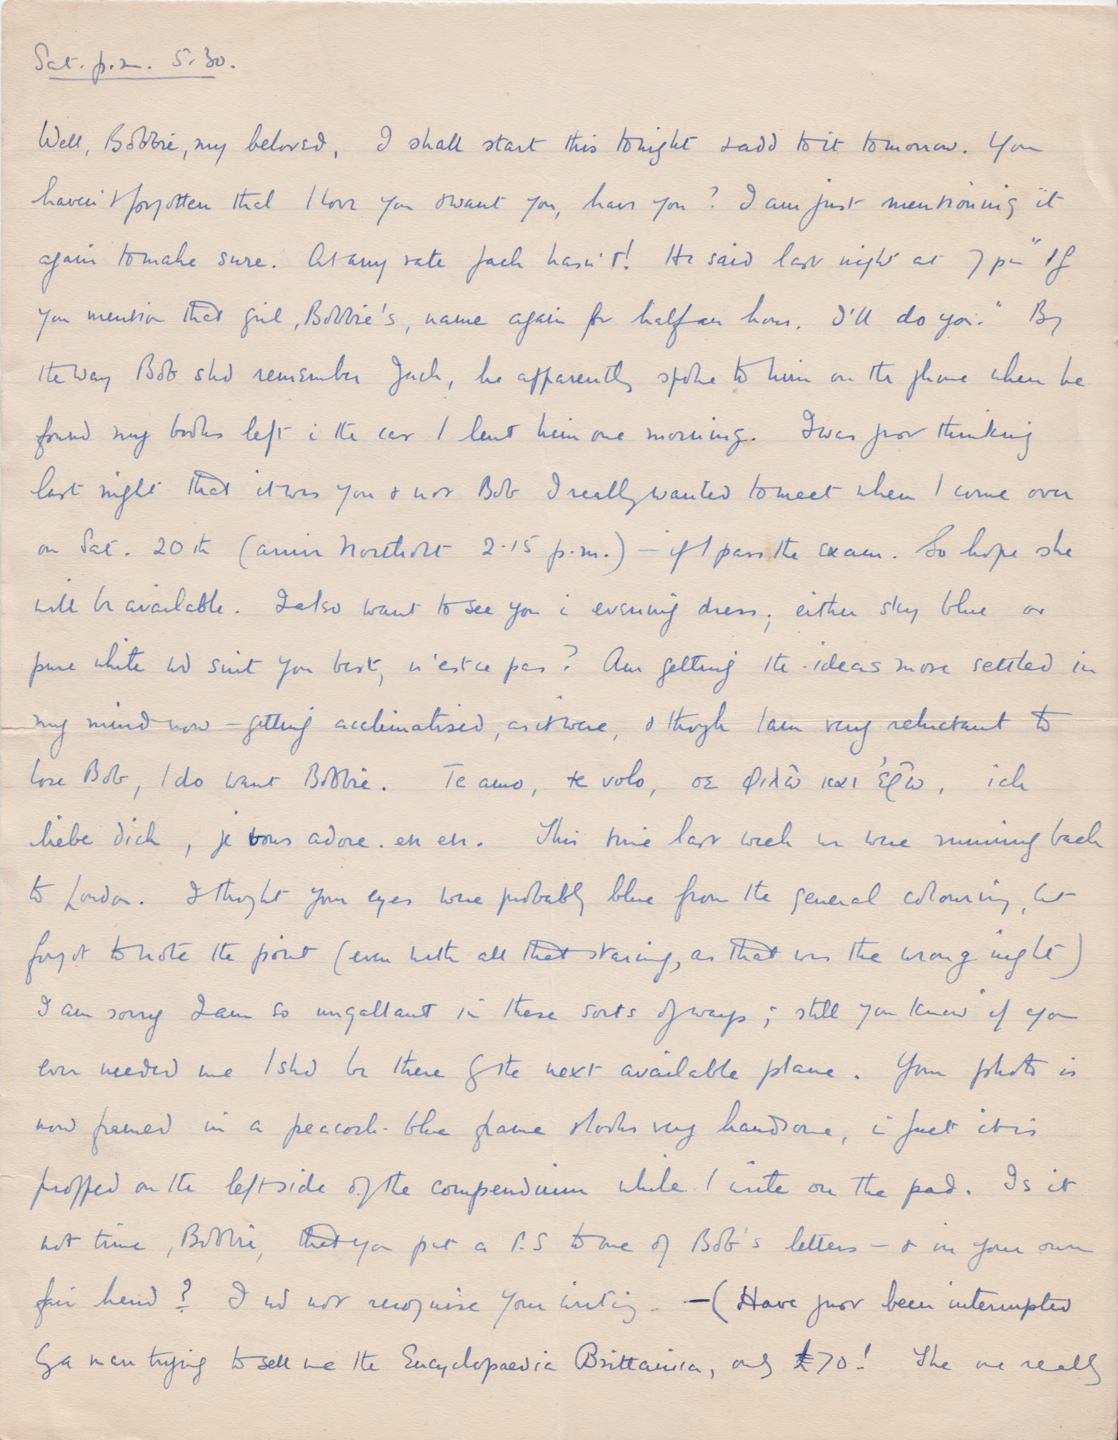 Sat. p.m. 5.30.
Well, Bobbie, my beloved, I shall start this tonight & add to it tomorrow. You
haven't forgotten that I love you & want you, have you? I am just mentioning it
again to make sure. At any rate Jack hasn't! He said last night at 7 pm "If
you mention that girl, Bobbie's, name again for half an hour, I'll do you." By
the way Bob shd remember Jack, he apparently spoke to him on the phone when he
found my books left i the car I lent him one morning. I was just thinking
last night that it was you & not Bob I really wanted to meet when I come over
on Sat. 20th (arrive Northolt 2.15 p.m.) – if I pass the exam. So hope she
will be available. I also want to see you i evening dress; either sky blue or
pure white wd suit you best, n'est ce pas? Am getting the ideas more settled in
my mind now – getting acclimatised, as it were, & though I am very reluctant to
lose Bob, I do want Bobbie. Te amo, te volo, σε φιλῶ και ἐρῶ, ich
liebe dich, je vous adore. en en. This time last week we were running back
to London. I thought your eyes were probably blue from the general colouring, but
forgot to note the point (even with all that staring, as that was the wrong night)
I am sorry I am so ungallant in these sorts of ways; still you know if you
ever needed me I shd be there by the next available plane. Your photo is
now framed in a peacock-blue frame & looks very handsome, i fact it is
propped on the left side of the compendium while I write on the pad. Is it
not time, Bobbie, that you put a P.S to one of Bob's letters – & in your own
fair hand? I wd not recognise your writing. – (Have just been interrupted
by a man trying to sell me the Encyclopaedia Brittainica, only £70! The one really